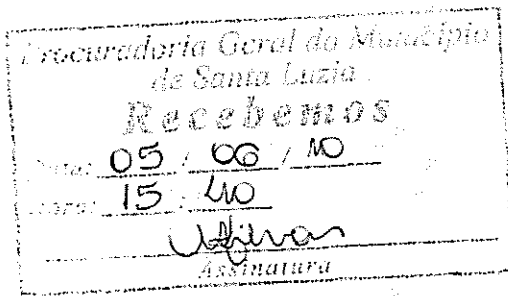 Procuradoria Geral do Município
de Santa Luzia
Recebemos
Data: 05 / 06 / 10
Hora: 15 : 40
Assinatura